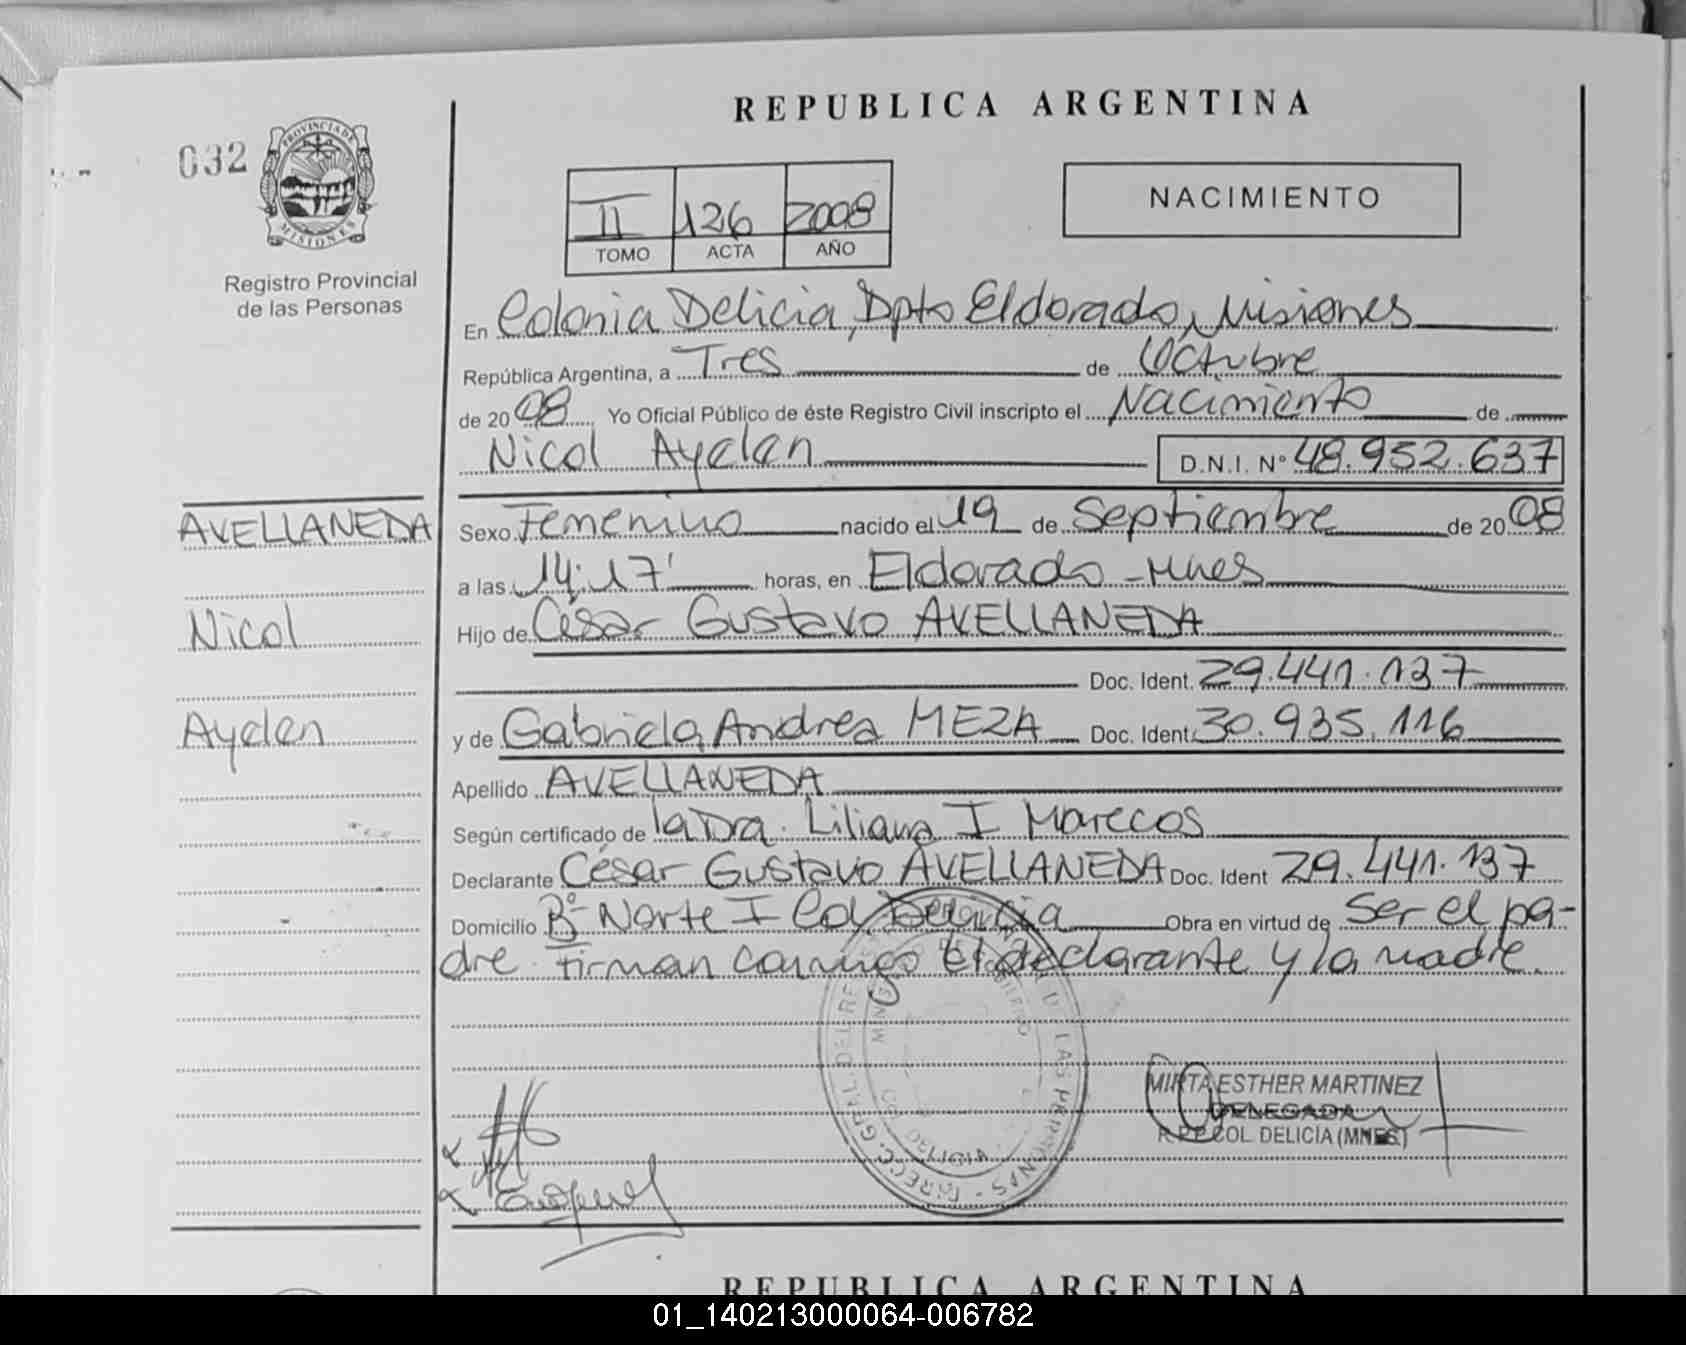 REPUBLICA ARGENTINA
032
PROVINCIA DE
MISIONES
Registro Provincial
de las Personas
II 126 2008
TOMO ACTA AÑO
NACIMIENTO
En Colonia Delicia, Dpto Eldorado, Misiones
República Argentina, a Tres de Octubre
de 2008 Yo Oficial Público de éste Registro Civil inscripto el Nacimiento de
Nicol Ayelen D.N.I. N° 48.952.637
AVELLANEDA
Nicol
Ayelen
Sexo Femenino nacido el 19 de Septiembre de 2008
a las 14:17' horas, en Eldorado - Mnes
Hijo de César Gustavo AVELLANEDA
Doc. Ident. 29.441.137
y de Gabriela Andrea MEZA Doc. Ident. 30.935.116
Apellido AVELLANEDA
Según certificado de la Dra. Liliana I Marecos
Declarante César Gustavo AVELLANEDA Doc. Ident 29.441.137
Domicilio Bº Norte I Col Delicia Obra en virtud de Ser el pa-
dre. Firman conmigo el declarante y la madre.
MIRTA ESTHER MARTINEZ
DELEGADA
R.P.P. COL. DELICIA (MNES.)
REPUBLICA ARGENTINA
01_140213000064-006782